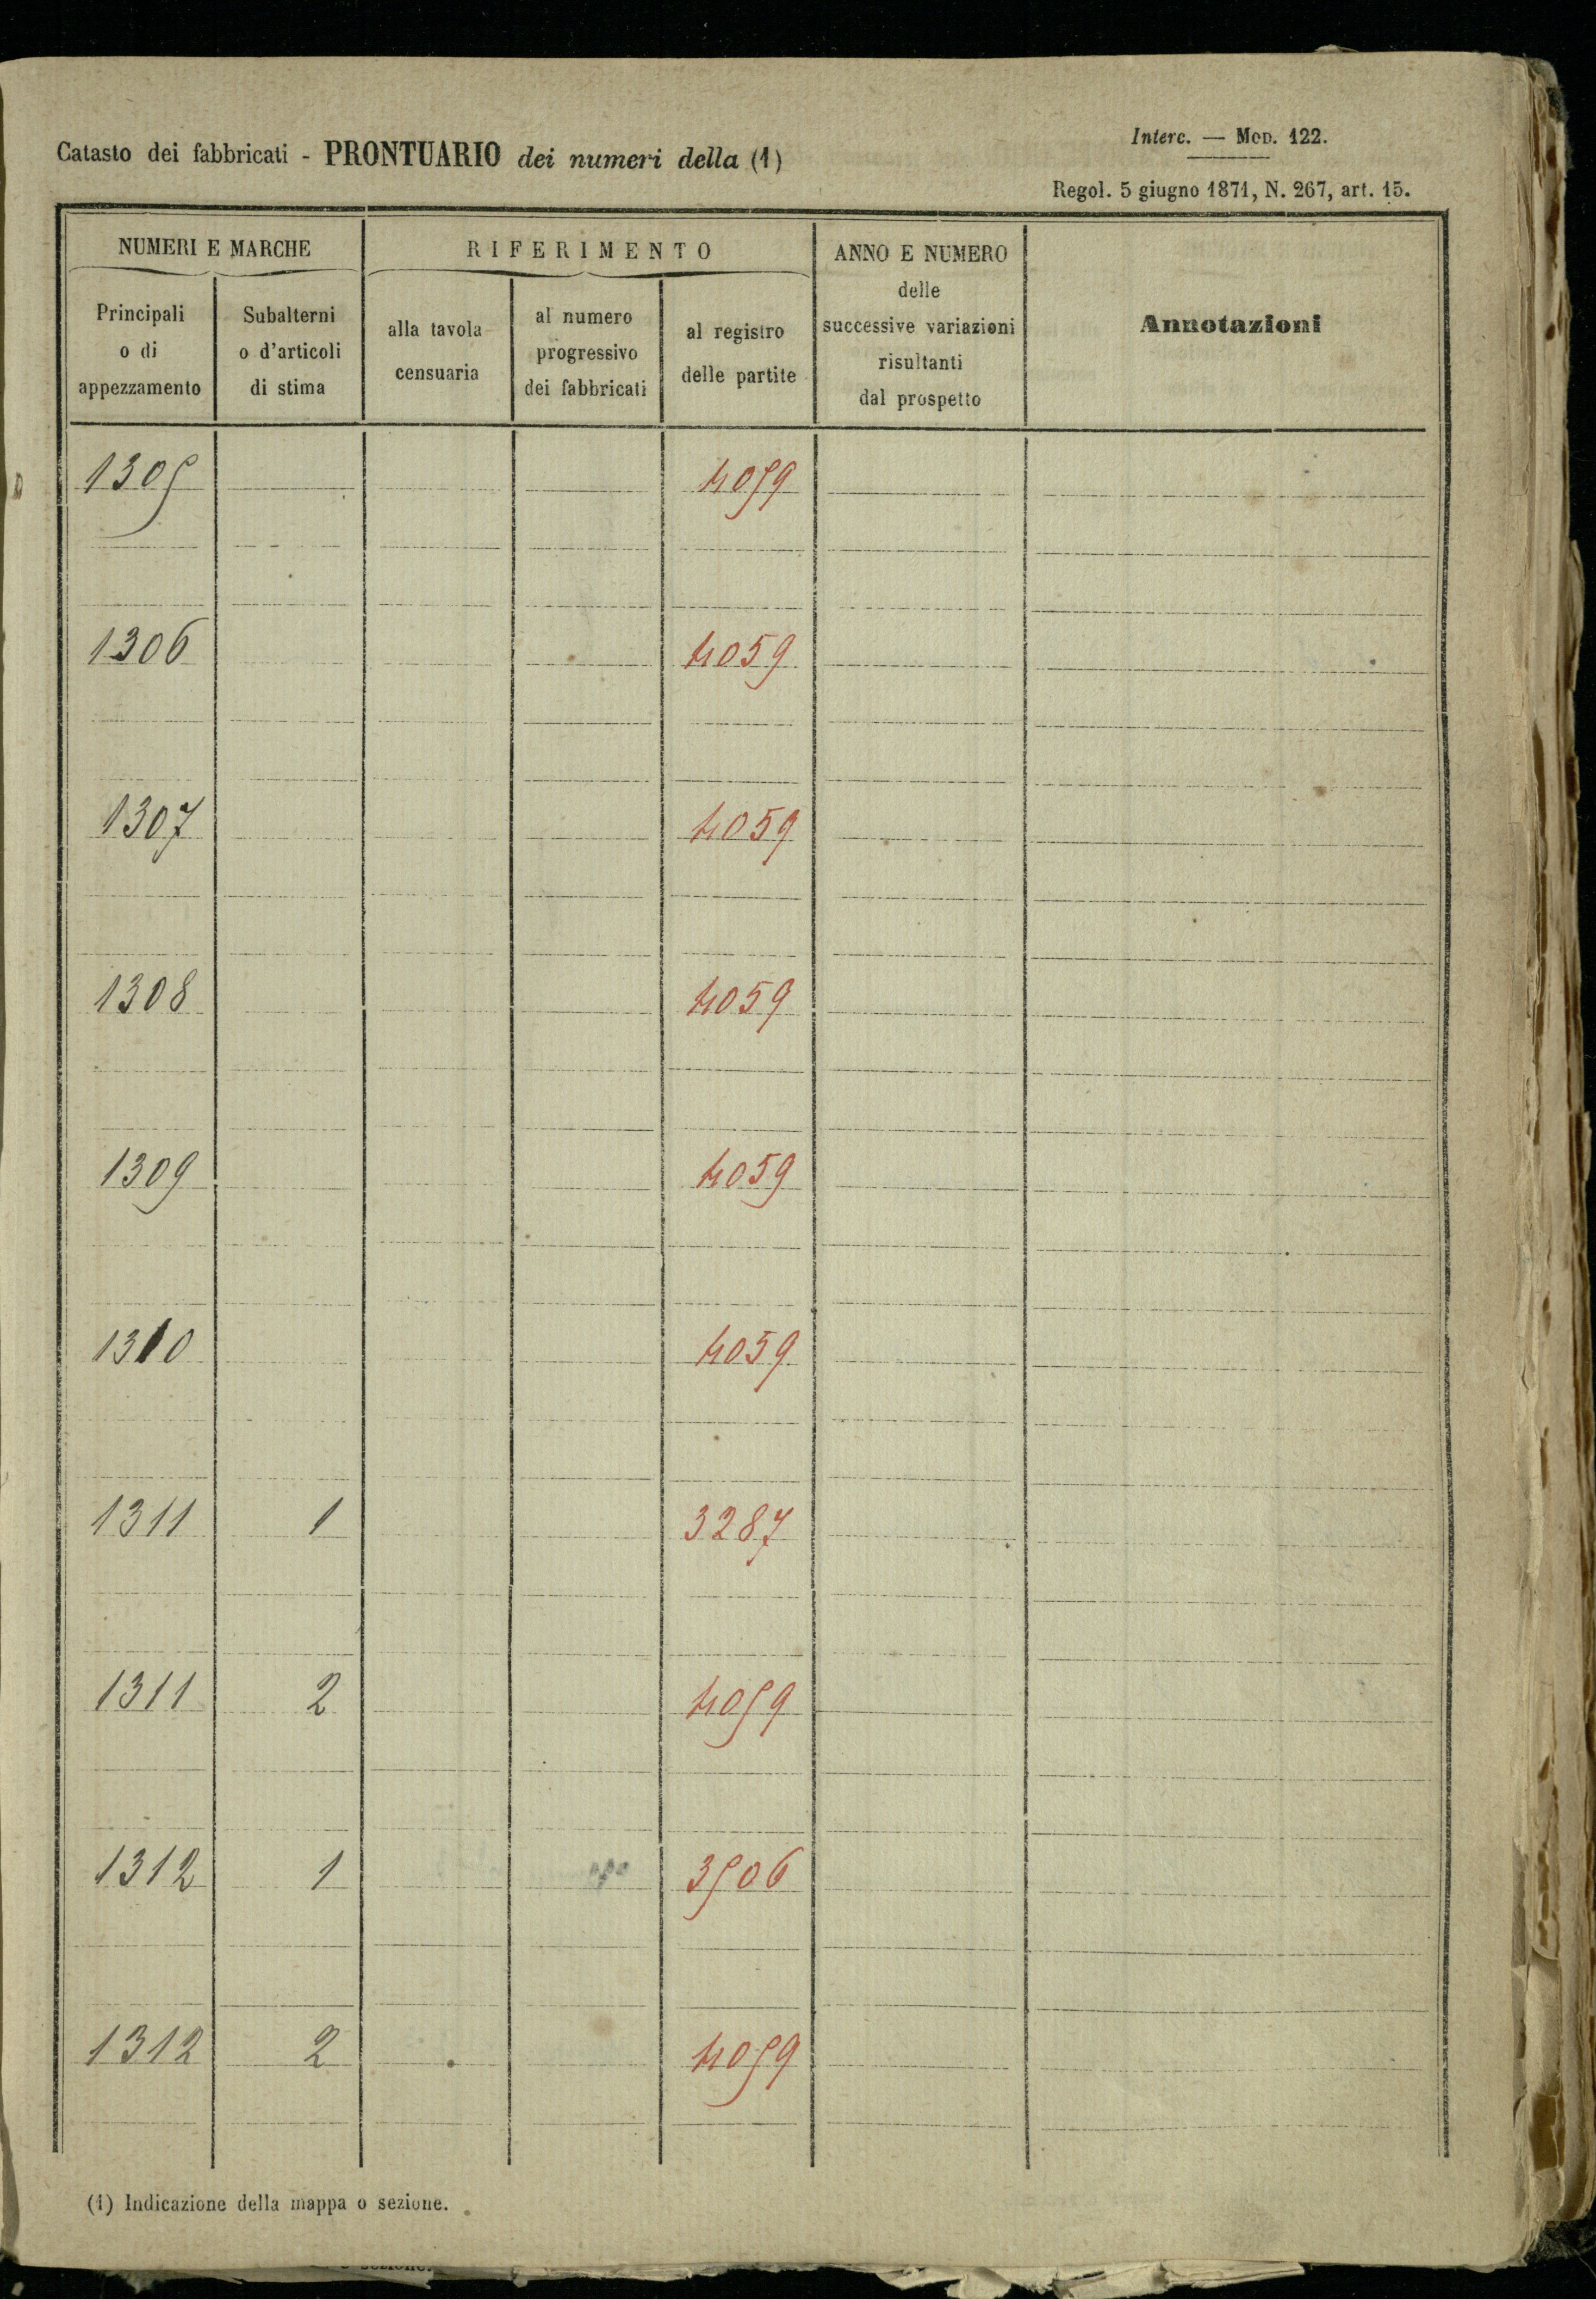 Catasto dei fabbricati - PRONTUARIO dei numeri della (1)
Interc. — Mod. 122.
Regol. 5 giugno 1871, N. 267, art. 15.
NUMERI E MARCHE
RIFERIMENTO
ANNO E NUMERO
delle
successive variazioni
risultanti
dal prospetto
Annotazioni
Principali
o di
appezzamento
Subalterni
o d'articoli
di stima
alla tavola
censuaria
al numero
progressivo
dei fabbricati
al registro
delle partite
1305 4059
1306 4059
1307 4059
1308 4059
1309 4059
1310 4059
1311 1 3287
1311 2 4059
1312 1 3506
1312 2 4059
(1) Indicazione della mappa o sezione.
sezione.